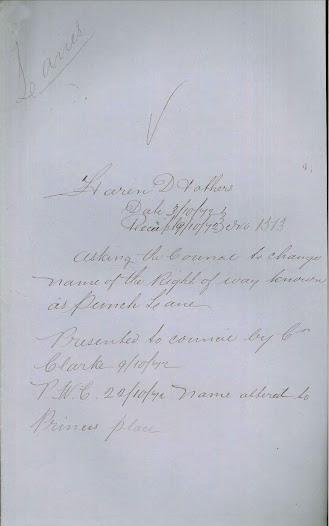 Lanes
Haren D & others
Date 3/10/72
Recd 9/10/72 No 1313
Asking the Council to change
name of the Right of way known
as Punch Lane
Presented to council by Cr
Clarke 9/10/72
P.W.C. 22/10/72 name altered to
Princes place